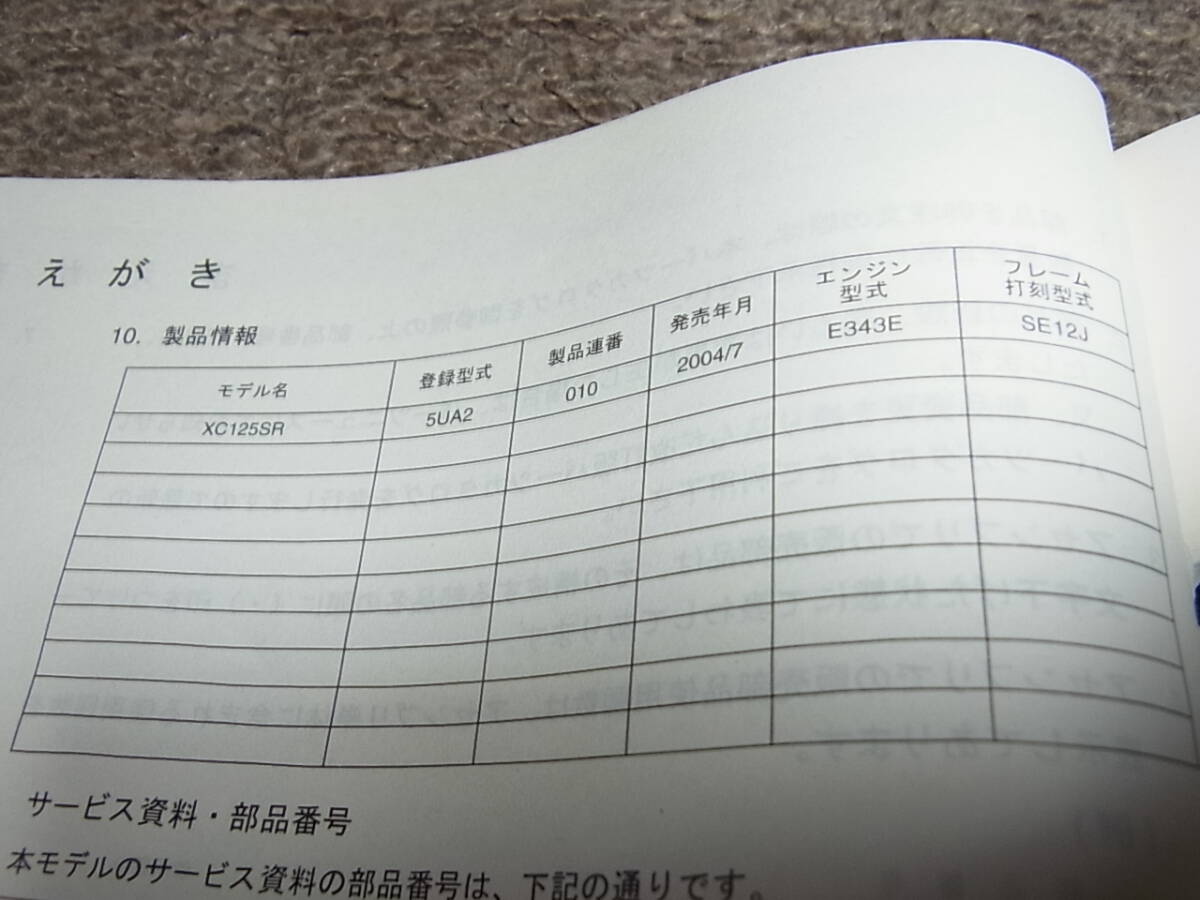 えがき
10. 製品情報
モデル名 登録型式 製品連番 発売年月 エンジン型式 フレーム打刻型式
XC125SR 5UA2 010 2004/7 E343E SE12J
サービス資料・部品番号
本モデルのサービス資料の部品番号は、下記の通りです。